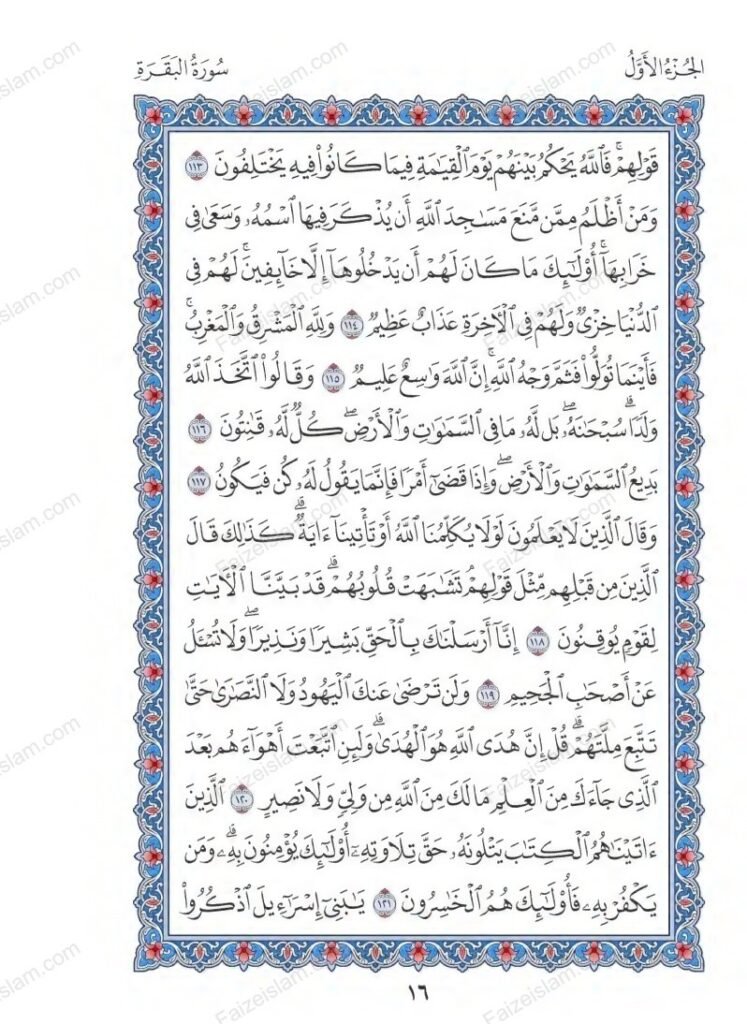 الجُزْءُ الأَوَّلُ
سُورَةُ البَقَرَةِ
قَوْلِهِمْ ۚ فَٱللَّهُ يَحْكُمُ بَيْنَهُمْ يَوْمَ ٱلْقِيَٰمَةِ فِيمَا كَانُوا۟ فِيهِ يَخْتَلِفُونَ ١١٣
وَمَنْ أَظْلَمُ مِمَّن مَّنَعَ مَسَٰجِدَ ٱللَّهِ أَن يُذْكَرَ فِيهَا ٱسْمُهُۥ وَسَعَىٰ فِى
خَرَابِهَآ ۚ أُو۟لَٰٓئِكَ مَا كَانَ لَهُمْ أَن يَدْخُلُوهَآ إِلَّا خَآئِفِينَ ۚ لَهُمْ فِى
ٱلدُّنْيَا خِزْىٌ وَلَهُمْ فِى ٱلْءَاخِرَةِ عَذَابٌ عَظِيمٌ ١١٤ وَلِلَّهِ ٱلْمَشْرِقُ وَٱلْمَغْرِبُ ۚ
فَأَيْنَمَا تُوَلُّوا۟ فَثَمَّ وَجْهُ ٱللَّهِ ۚ إِنَّ ٱللَّهَ وَٰسِعٌ عَلِيمٌ ١١٥ وَقَالُوا۟ ٱتَّخَذَ ٱللَّهُ
وَلَدًا ۗ سُبْحَٰنَهُۥ ۖ بَل لَّهُۥ مَا فِى ٱلسَّمَٰوَٰتِ وَٱلْأَرْضِ ۖ كُلٌّ لَّهُۥ قَٰنِتُونَ ١١٦
بَدِيعُ ٱلسَّمَٰوَٰتِ وَٱلْأَرْضِ ۖ وَإِذَا قَضَىٰٓ أَمْرًا فَإِنَّمَا يَقُولُ لَهُۥ كُن فَيَكُونُ ١١٧
وَقَالَ ٱلَّذِينَ لَا يَعْلَمُونَ لَوْلَا يُكَلِّمُنَا ٱللَّهُ أَوْ تَأْتِينَآ ءَايَةٌ ۗ كَذَٰلِكَ قَالَ
ٱلَّذِينَ مِن قَبْلِهِم مِّثْلَ قَوْلِهِمْ ۘ تَشَٰبَهَتْ قُلُوبُهُمْ ۗ قَدْ بَيَّنَّا ٱلْءَايَٰتِ
لِقَوْمٍ يُوقِنُونَ ١١٨ إِنَّآ أَرْسَلْنَٰكَ بِٱلْحَقِّ بَشِيرًا وَنَذِيرًا ۖ وَلَا تُسْـَٔلُ
عَنْ أَصْحَٰبِ ٱلْجَحِيمِ ١١٩ وَلَن تَرْضَىٰ عَنكَ ٱلْيَهُودُ وَلَا ٱلنَّصَٰرَىٰ حَتَّىٰ
تَتَّبِعَ مِلَّتَهُمْ ۗ قُلْ إِنَّ هُدَى ٱللَّهِ هُوَ ٱلْهُدَىٰ ۗ وَلَئِنِ ٱتَّبَعْتَ أَهْوَآءَهُم بَعْدَ
ٱلَّذِى جَآءَكَ مِنَ ٱلْعِلْمِ ۙ مَا لَكَ مِنَ ٱللَّهِ مِن وَلِىٍّ وَلَا نَصِيرٍ ١٢٠ ٱلَّذِينَ
ءَاتَيْنَٰهُمُ ٱلْكِتَٰبَ يَتْلُونَهُۥ حَقَّ تِلَاوَتِهِۦٓ أُو۟لَٰٓئِكَ يُؤْمِنُونَ بِهِۦ ۗ وَمَن
يَكْفُرْ بِهِۦ فَأُو۟لَٰٓئِكَ هُمُ ٱلْخَٰسِرُونَ ١٢١ يَٰبَنِىٓ إِسْرَٰٓءِيلَ ٱذْكُرُوا۟
١٦
Faizeislam.com